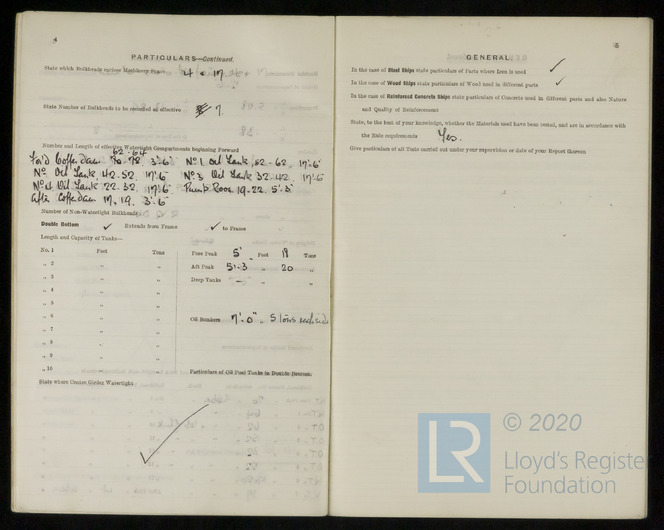 4
PARTICULARS—Continued.
State which Bulkheads enclose Machinery Space 4 & 17.
State Number of Bulkheads to be recorded as effective 7.
Number and Length of effective Watertight Compartments beginning Forward
62-64
For'd Cofferdam 3'.6" No 1 Oil Tank, 52-62, 17'.6"
No Oil Tank 42.52. 17'.6" No 3 Oil Tank 32.42. 17'.6"
No 4 Oil Tank 22.32. 17'.6" Pump Room 19-22. 5'.3"
After Cofferdam 17.19. 3'.6"
Number of Non-Watertight Bulkheads
Double Bottom ✓ Extends from Frame ✓ to Frame
Length and Capacity of Tanks—
No. 1 Feet Tons Fore Peak 5' Feet 19 Tons
„ 2 „ „ Aft Peak 5'.3 „ 20 „
„ 3 „ „ Deep Tanks — „ „
„ 4 „ „
„ 5 „ „
„ 6 „ „ Oil Bunkers 7'.0" „ 5 tons each side
„ 7 „ „
„ 8 „ „
„ 9 „ „
„ 10 „ „ Particulars of Oil Fuel Tanks in Double Bottom:
State where Centre Girder Watertight:
5
GENERAL.
In the case of Steel Ships state particulars of Parts where Iron is used ✓
In the case of Wood Ships state particulars of Wood used in different parts ✓
In the case of Reinforced Concrete Ships state particulars of Concrete used in different parts and also Nature
and Quality of Reinforcement
State, to the best of your knowledge, whether the Materials used have been tested, and are in accordance with
the Rule requirements Yes.
Give particulars of all Tests carried out under your supervision or date of your Report thereon
LR
© 2020
Lloyd's Register
Foundation